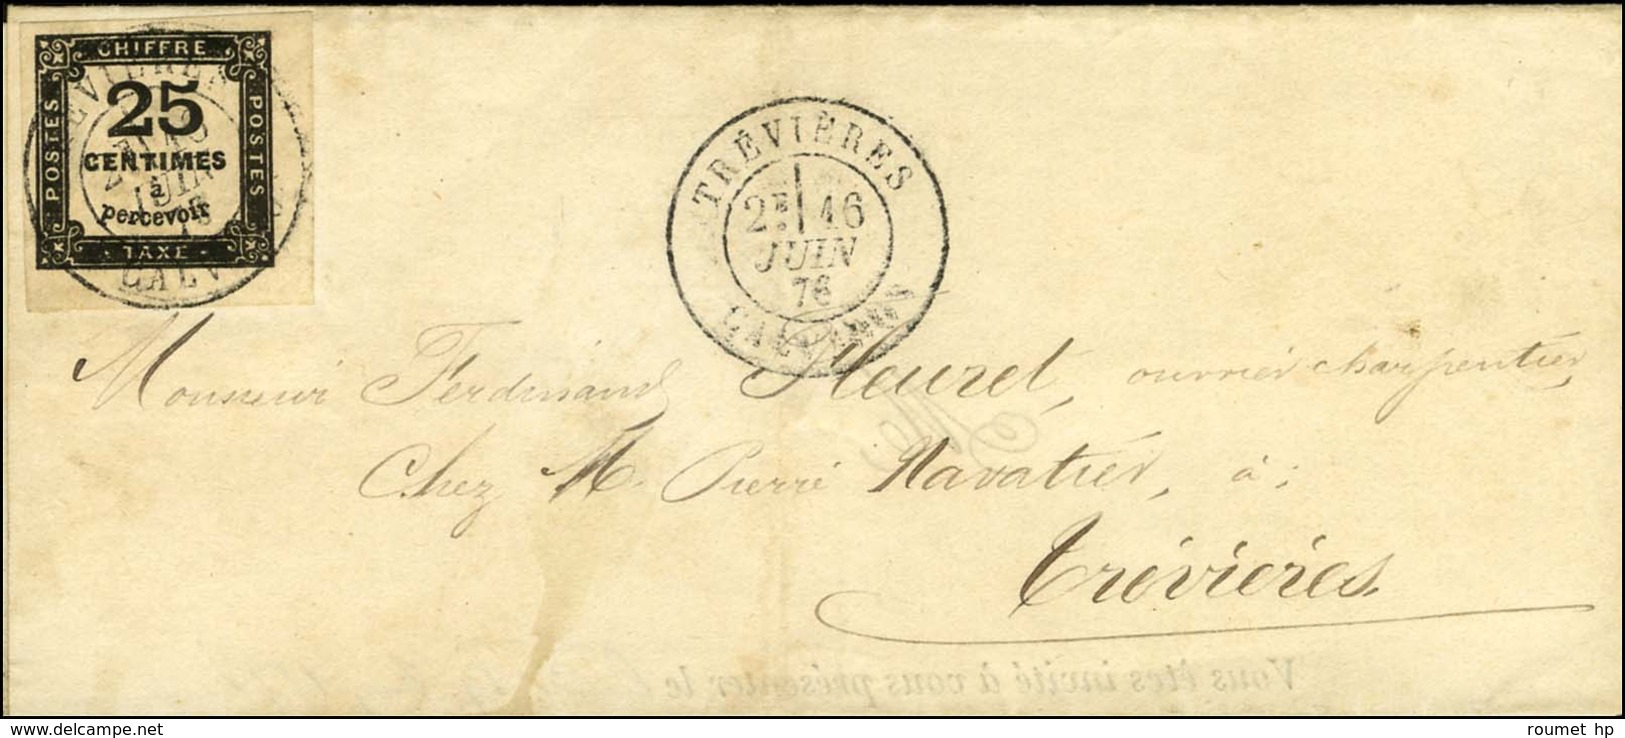 CHIFFRE
POSTES
POSTES
25
CENTIMES
à
percevoir
TAXE
JUIN
CALV
TRÉVIÈRES
2E 16
JUIN
76
CALVADOS
Monsieur Ferdinand Heuzel, ouvrier charpentier
Chez M. Pierre Navatier, à :
Trévières.
Vous êtes invité à vous présenter le
roumet hp